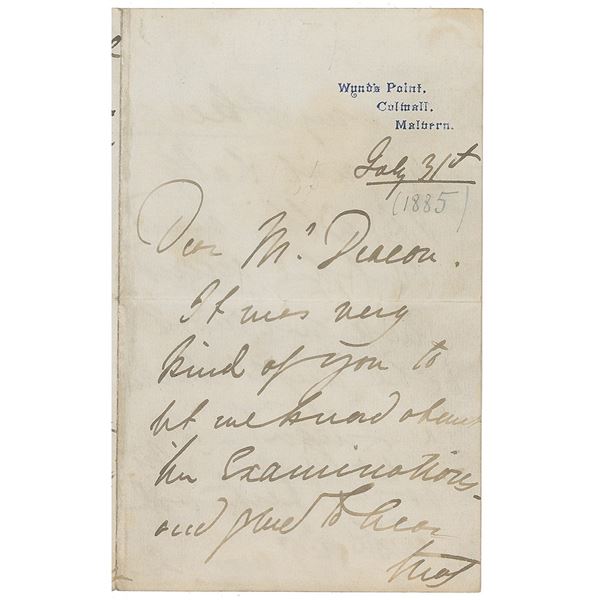 Wynd's Point.
Colwall.
Malvern.
July 31st
(1885)
Dear Mr Deacon.
It was very
kind of you to
let me know about
the Examinations
and glad to hear
that